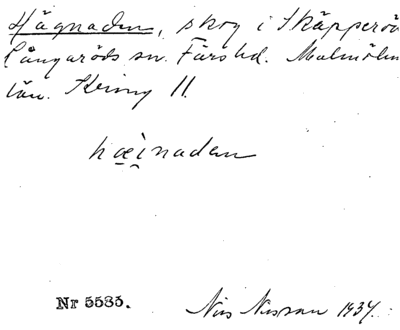 Hägnaden, skog i Skäpperöd
Långaröds sn. Färs hd. Malmöhus
län.
hæi̯naden
Nr 5535.
Nils Nilsson 1937.